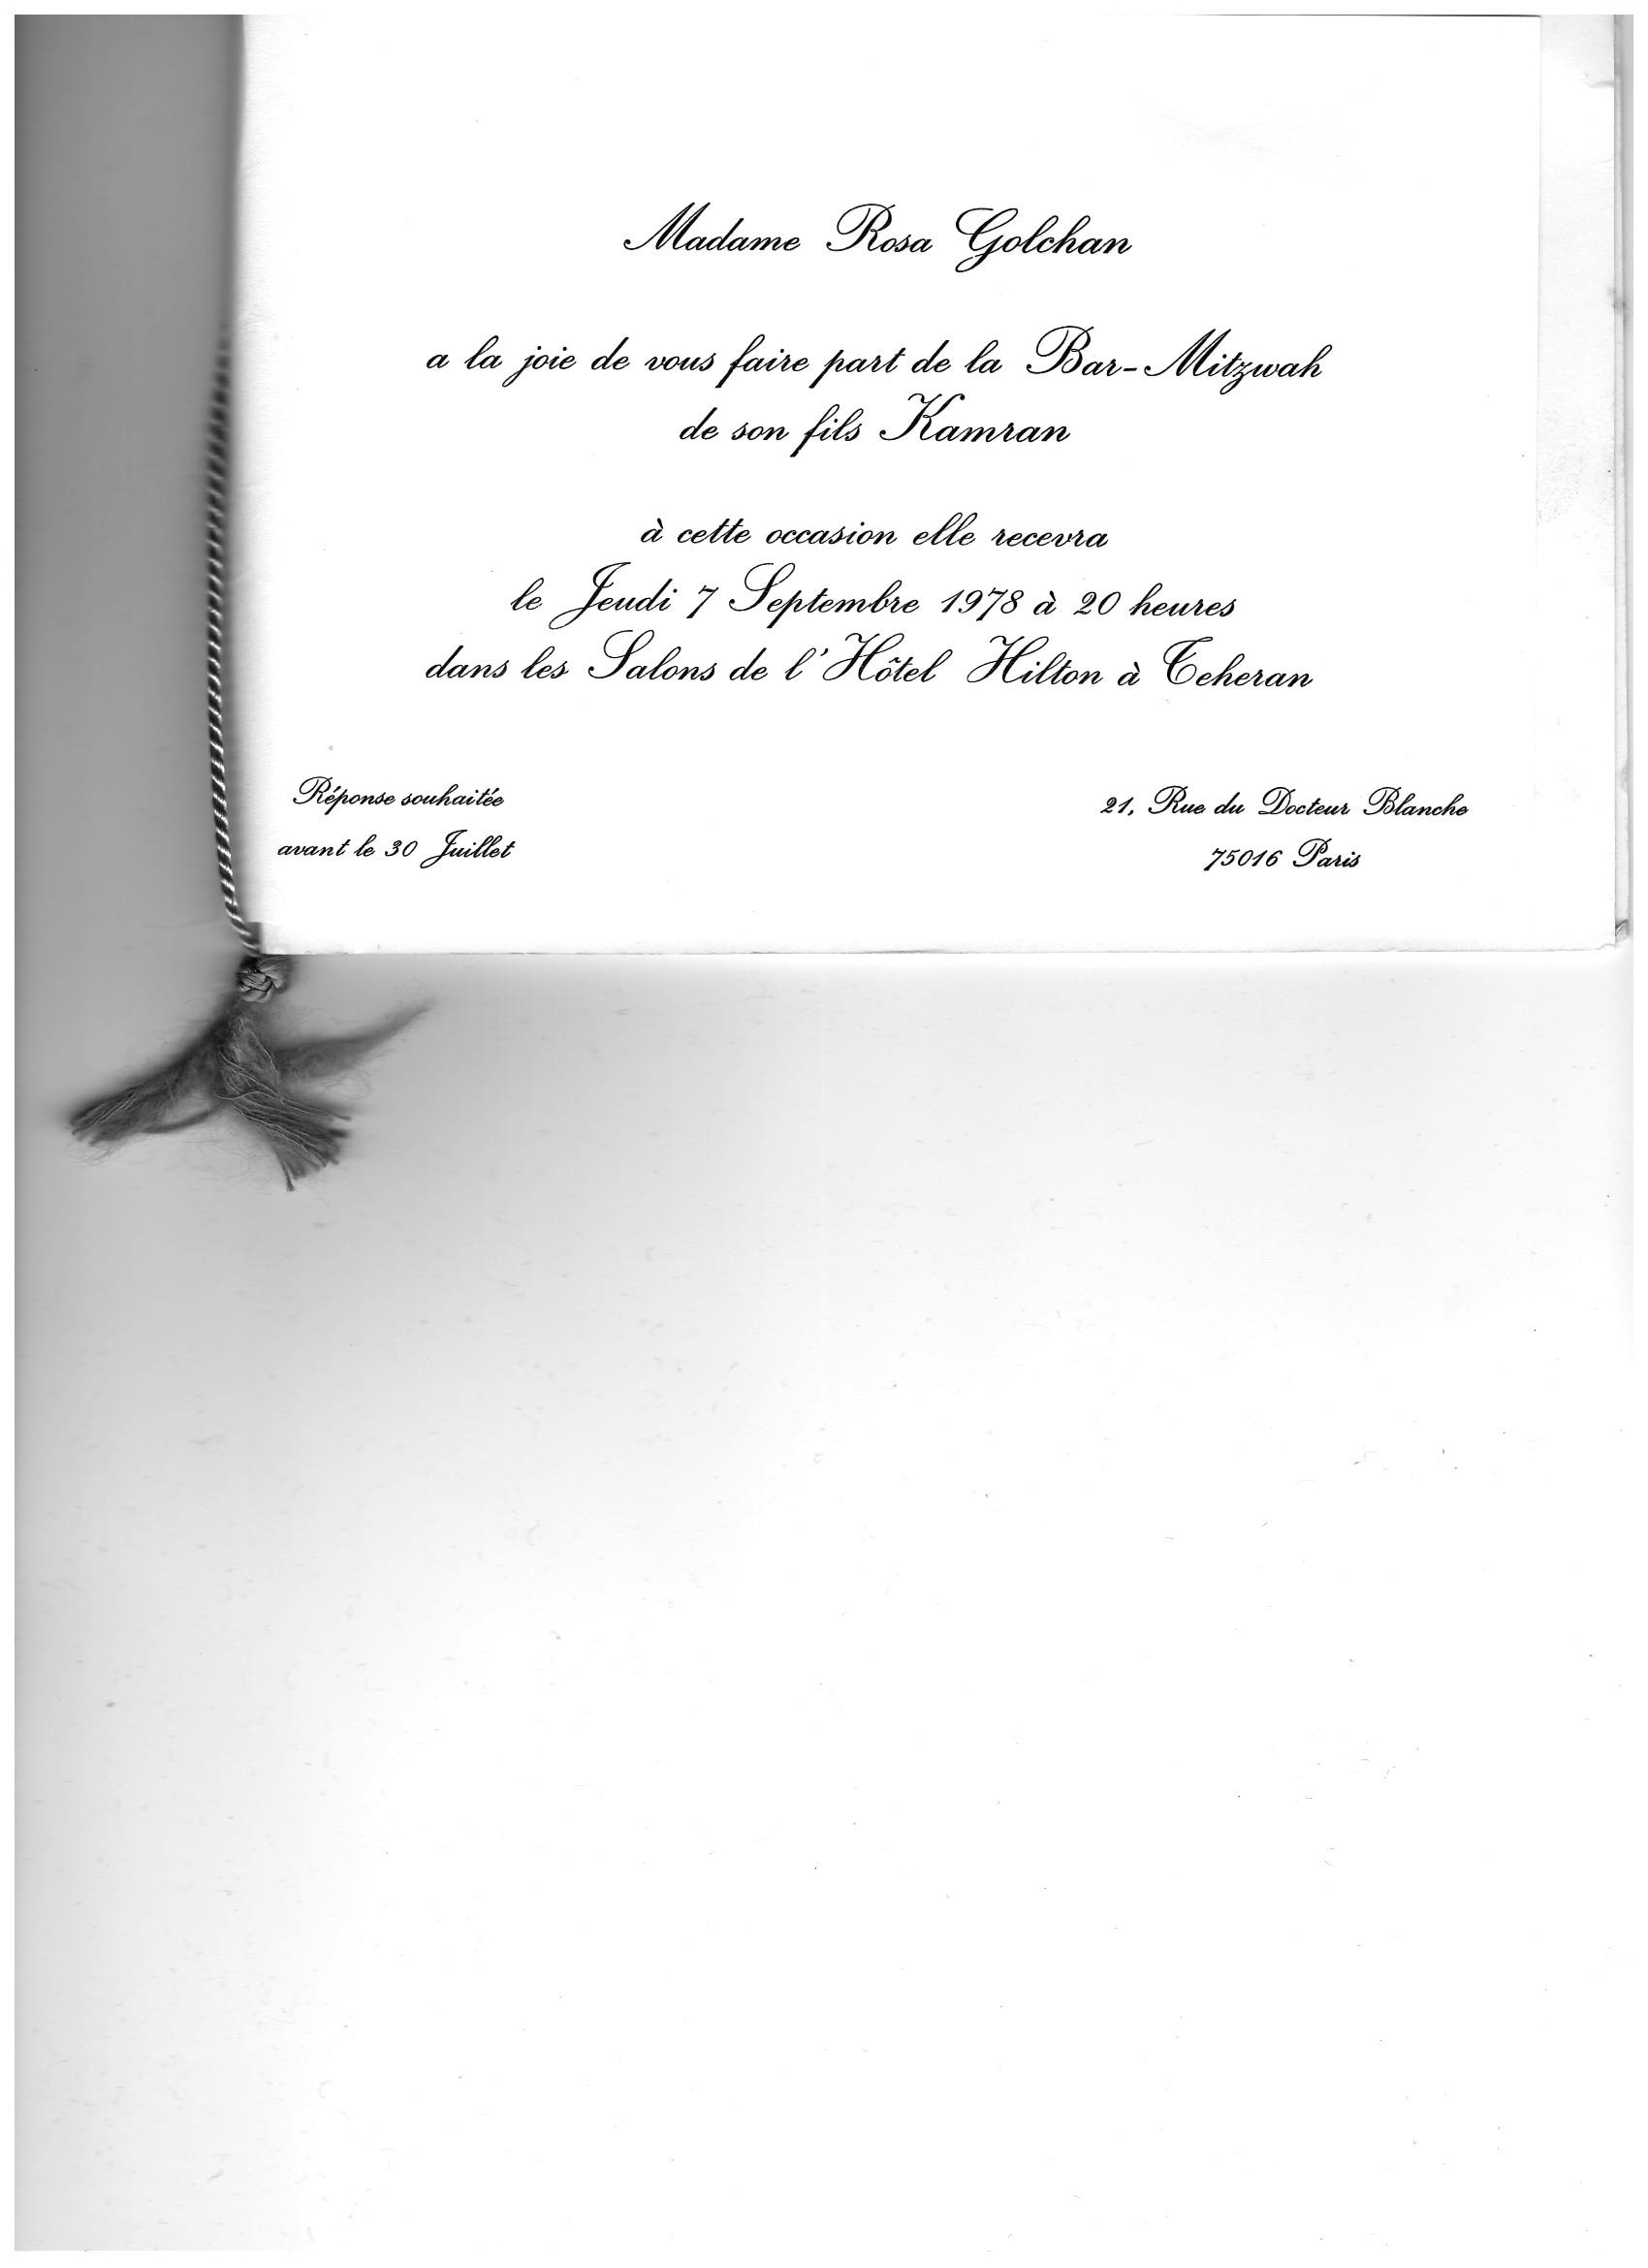 Madame Rosa Golchan
a la joie de vous faire part de la Bar-Mitzwah
de son fils Kamran
à cette occasion elle recevra
le Jeudi 7 Septembre 1978 à 20 heures
dans les Salons de l'Hôtel Hilton à Teheran
Réponse souhaitée
avant le 30 Juillet
21, Rue du Docteur Blanche
75016 Paris